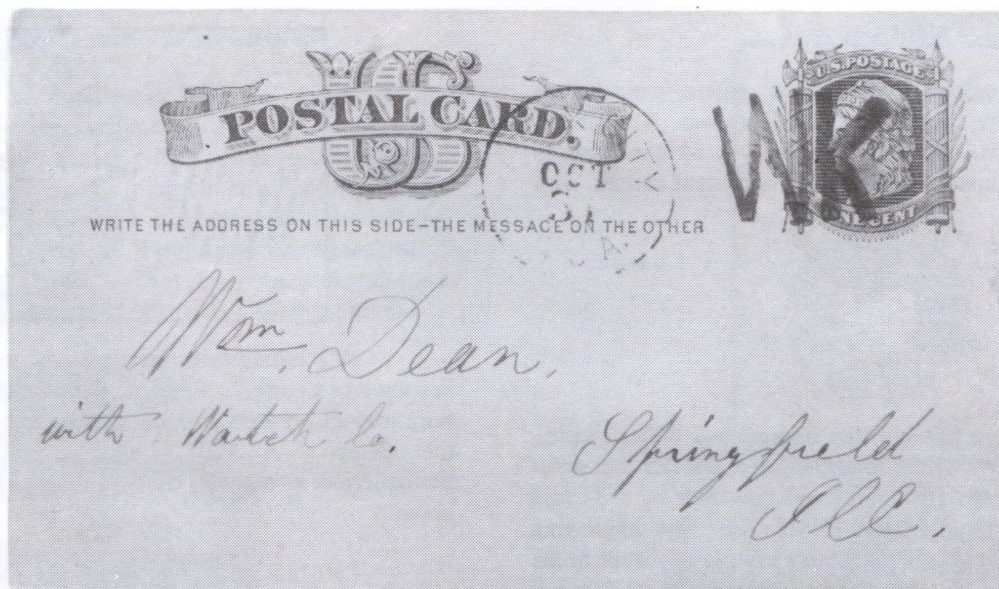 US
POSTAL CARD.
U.S. POSTAGE
ONE CENT
WRITE THE ADDRESS ON THIS SIDE–THE MESSAGE ON THE OTHER
OCT
31
Wm. Dean,
with Watch Co.
Springfield
Ill.